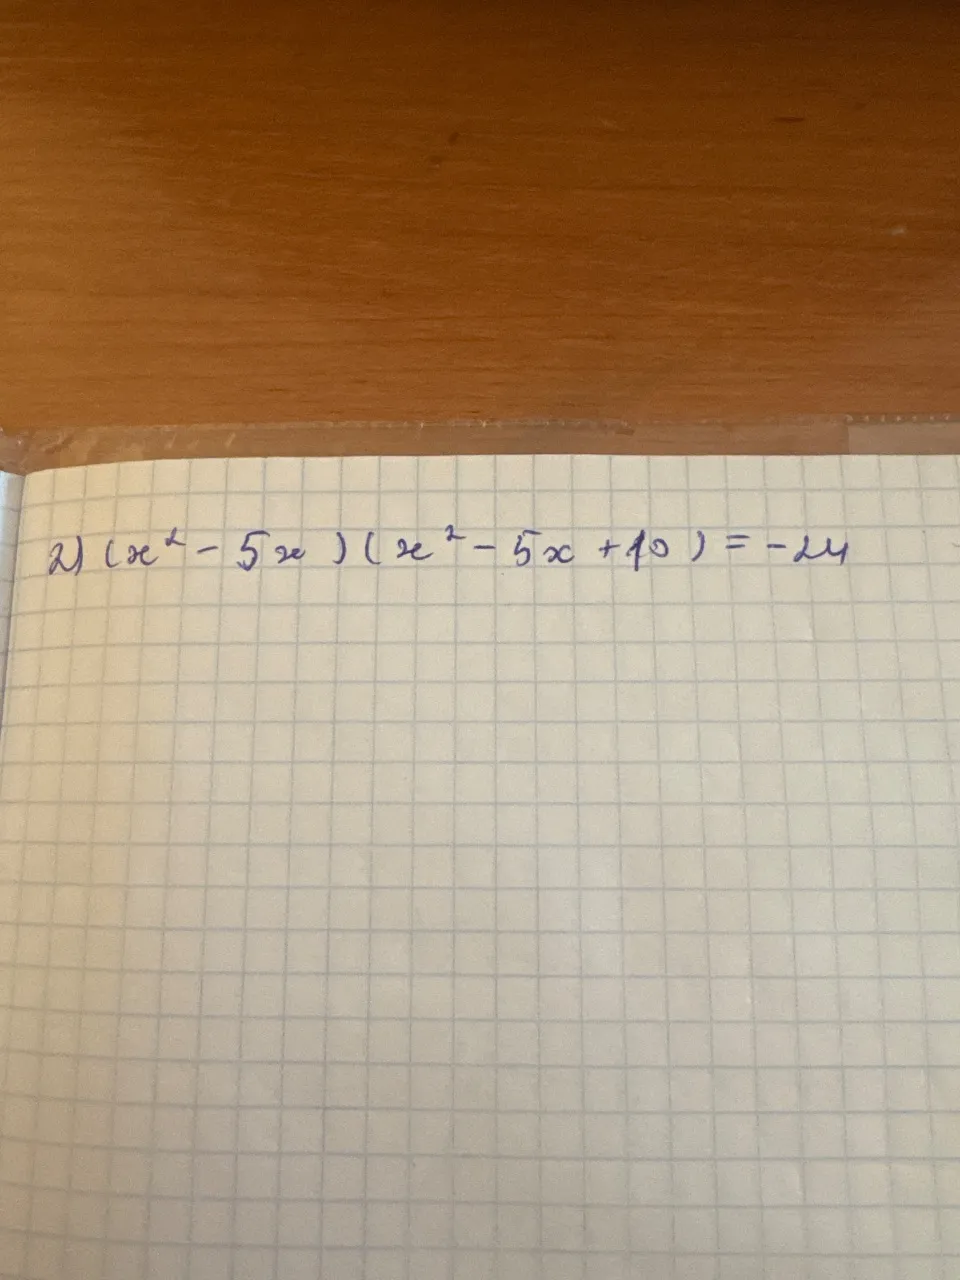 2) (x² - 5x)(x² - 5x + 10) = -24